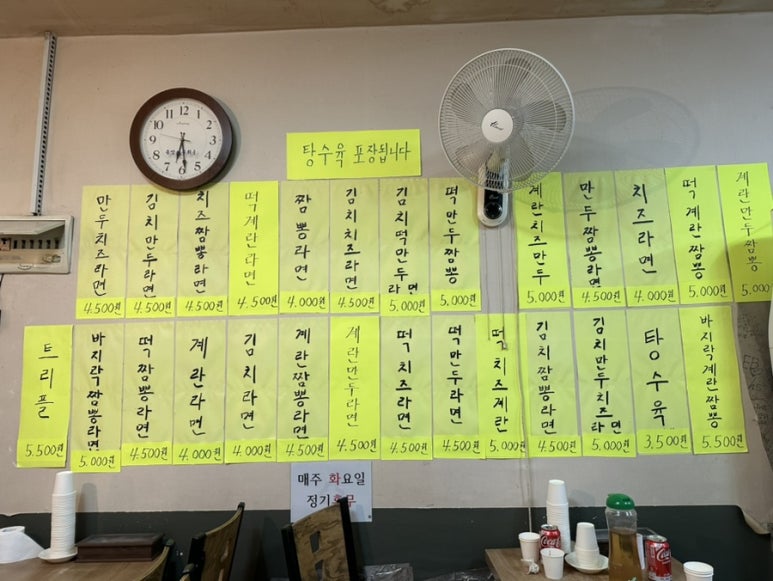 탕수육 포장됩니다
만두치즈라면 4.500원
김치만두라면 4.500원
치즈짬뽕라면 4.500원
떡계란라면 4.500원
짬뽕라면 4.000원
김치치즈라면 4.500원
김치떡만두라면 5.000원
떡만두짬뽕 5.000원
계란치즈만두 5.000원
만두짬뽕라면 4.500원
치즈라면 4.000원
떡계란짬뽕 5.000원
계란만두짬뽕 5.000원
트리플 5.500원
바지락짬뽕라면 5.000원
떡짬뽕라면 4.500원
계란라면 4.000원
김치라면 4.000원
계란짬뽕라면 4.500원
계란만두라면 4.500원
떡치즈라면 4.500원
떡만두라면 4.500원
떡치즈계란 5.000원
김치짬뽕라면 4.500원
김치만두치즈라면 5.000원
탕수육 3,500원
바지락계란짬뽕 5.500원
매주 화요일
정기휴무